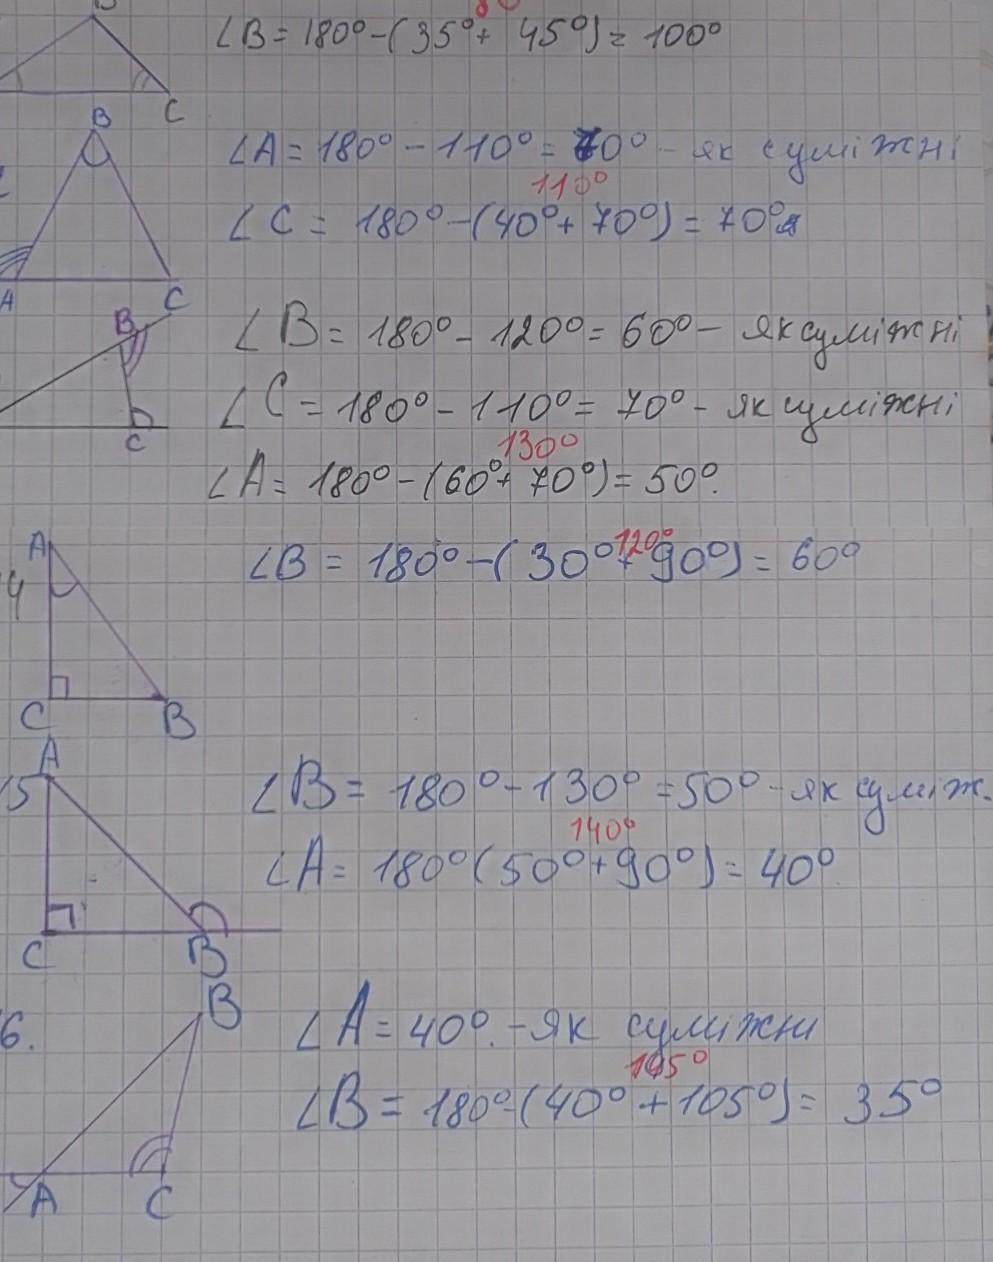 ∠B = 180° - (35° + 45°) = 100°
C
B
∠A = 180° - 110° = 70° - як суміжні
110°
∠C = 180° - (40° + 70°) = 70°
A
C
B
∠B = 180° - 120° = 60° - як суміжні
∠C = 180° - 110° = 70° - як суміжні
C
130°
∠A = 180° - (60° + 70°) = 50°.
A
120°
∠B = 180° - (30° + 90°) = 60°
4
C
B
A
5
∠B = 180° - 130° = 50° - як суміж.
140°
∠A = 180° (50° + 90°) = 40°
C
B
6.
B
∠A = 40°. - як суміжни
145°
∠B = 180° - (40° + 105°) = 35°
A
C